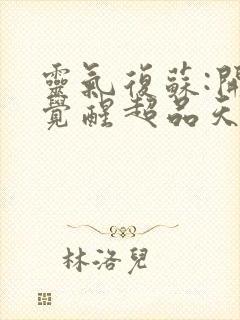 靈氣復蘇:開
覺醒超品天
林洛兒